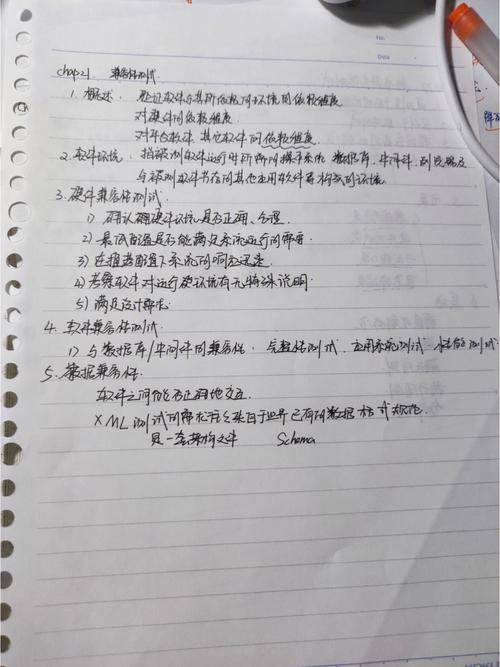 chap21 兼容性测试
1. 概述: 验证软件与其所依赖的环境的依赖程度
对硬件的依赖程度
对平台软件、其他软件的依赖程度
2. 软件环境: 指被测软件运行时所需的操作系统、数据库、中间件、浏览器及
与被测软件共存的其他应用软件等构成的环境
3. 硬件兼容性测试:
1) 确认硬件环境是否正确、合理
2) 最低配置是否能满足系统运行的需要
3) 在推荐配置下系统的响应迅速
4) 考察软件对运行硬环境有无特殊说明
5) 满足设计需求
4. 软件兼容性测试
1) 与数据库/中间件的兼容性: 完整性测试、应用系统测试、性能测试
5. 数据兼容性
软件之间能否正确地交互
XML测试的需求往往来自于业界已有的数据格式规范,
是一套架构文件 Schema
No.
Date